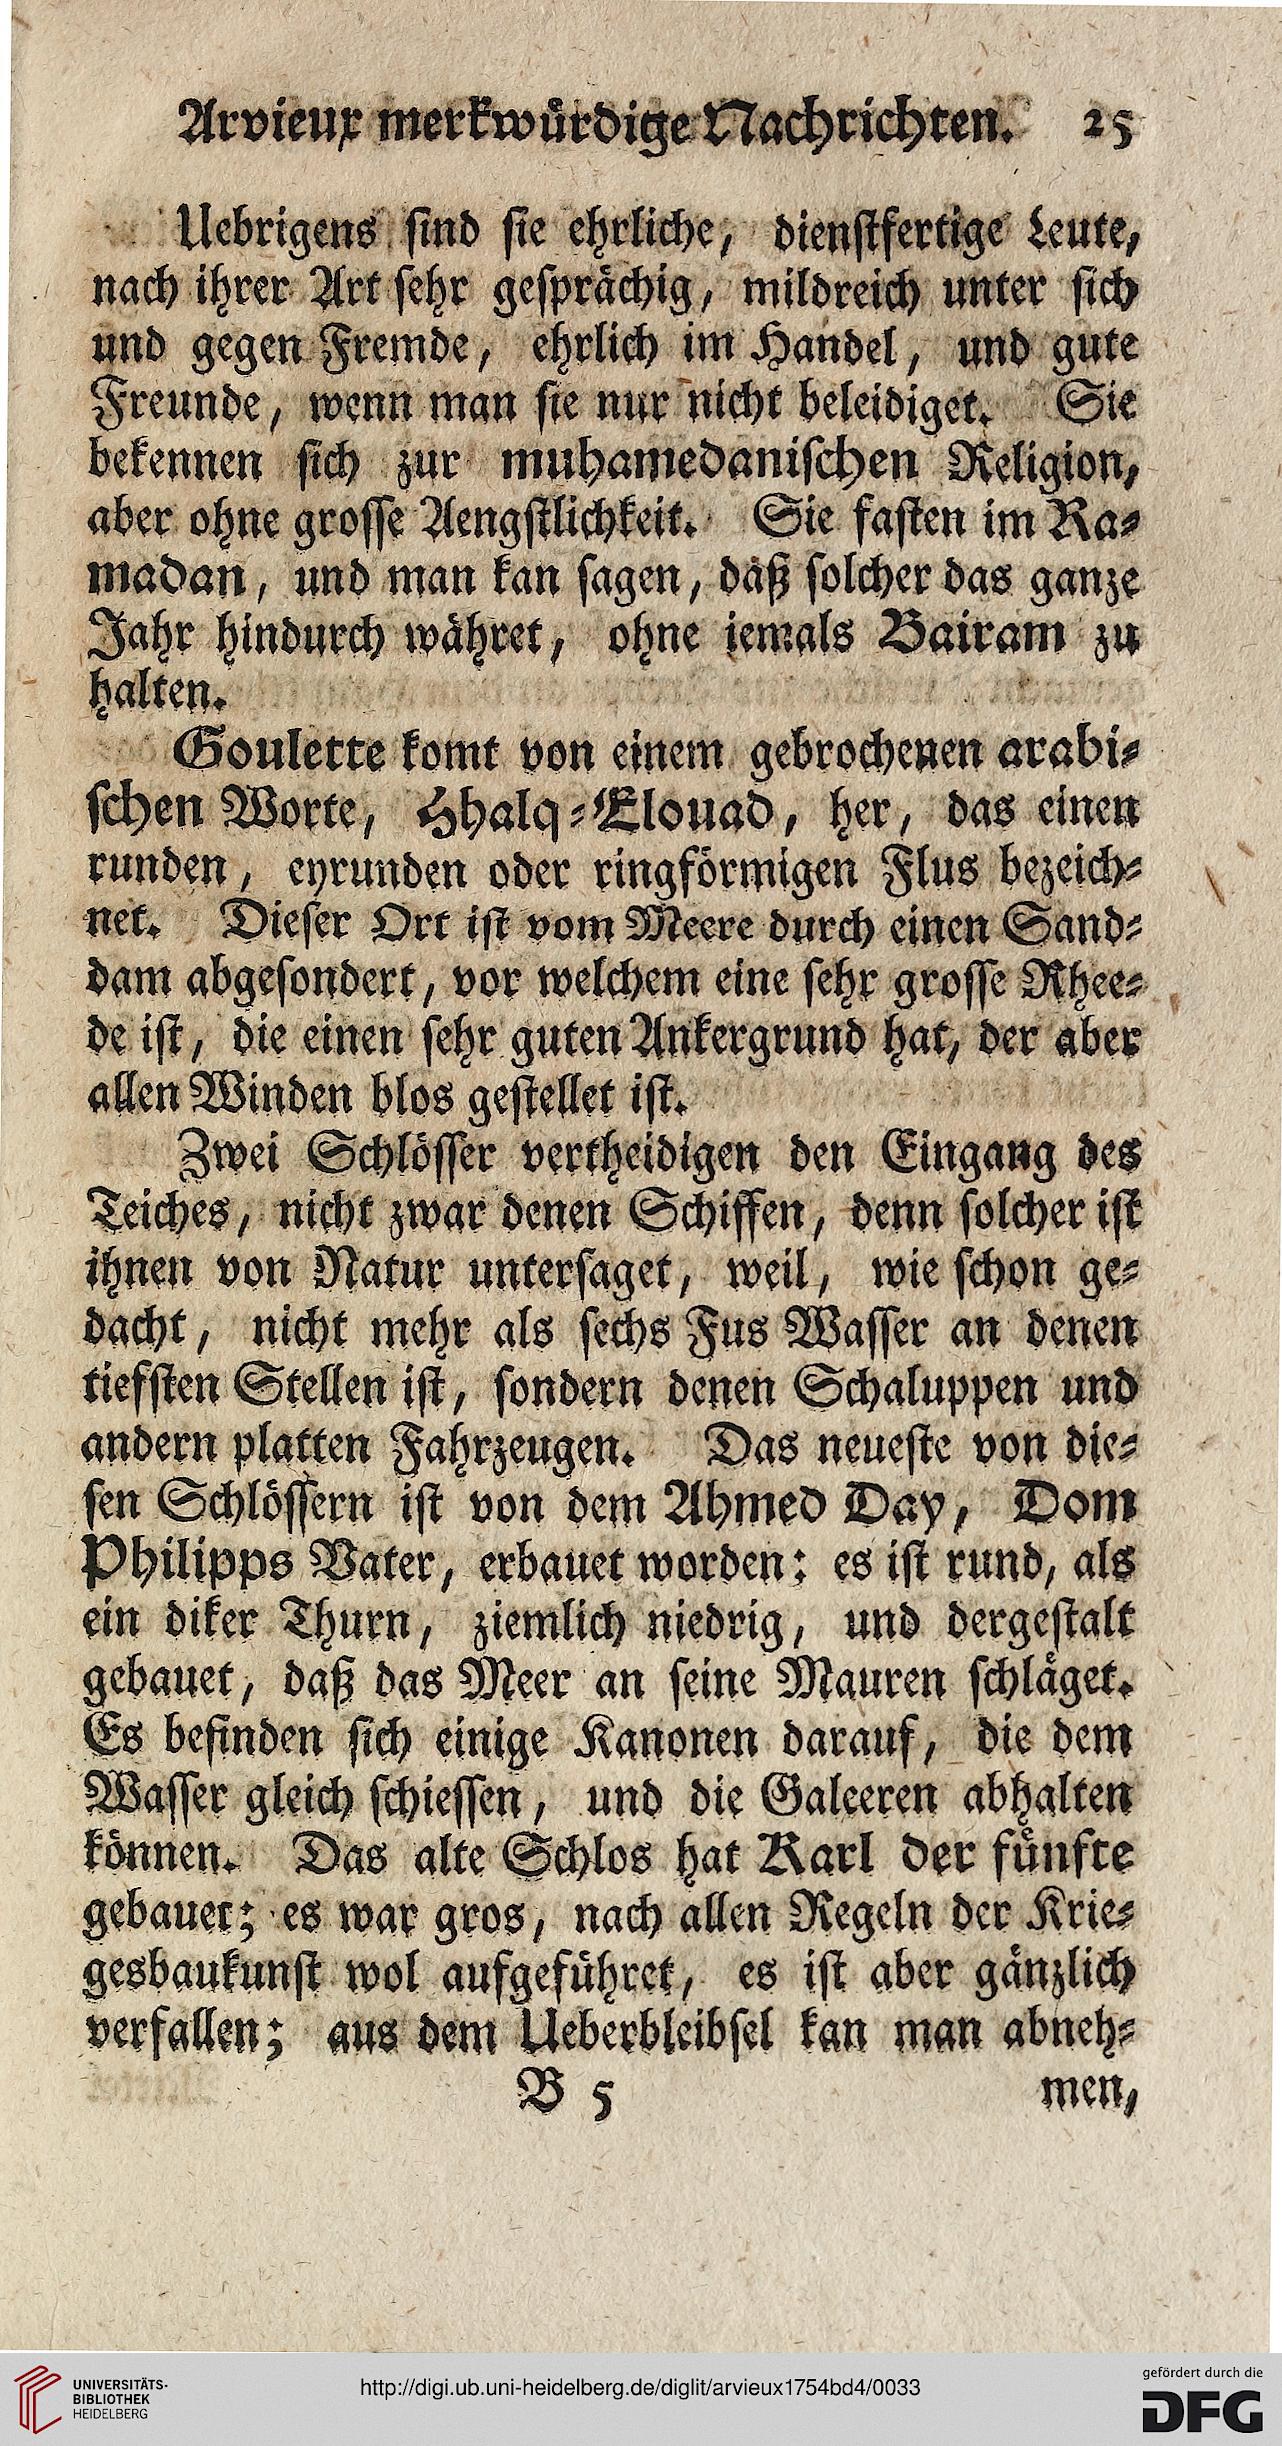 Arvieux merkwürdige Nachrichten. 25
Uebrigens sind sie ehrliche, dienstfertige Leute,
nach ihrer Art sehr gesprächig, mildreich unter sich
und gegen Fremde, ehrlich im Handel, und gute
Freunde, wenn man sie nur nicht beleidiget. Sie
bekennen sich zur muhamedanischen Religion,
aber ohne grosse Aengstlichkeit. Sie fasten im Ra-
madan, und man kan sagen, daß solcher das ganze
Jahr hindurch währet, ohne iemals Bairam zu
halten.
Goulette komt von einem gebrochenen arabi-
schen Worte, Hhalq-Elouad, her, das einen
runden, eyrunden oder ringförmigen Flus bezeich-
net. Dieser Ort ist vom Meere durch einen Sand-
dam abgesondert, vor welchem eine sehr grosse Rhee-
de ist, die einen sehr guten Ankergrund hat, der aber
allen Winden blos gestellet ist.
Zwei Schlösser vertheidigen den Eingang des
Teiches, nicht zwar denen Schiffen, denn solcher ist
ihnen von Natur untersaget, weil, wie schon ge-
dacht, nicht mehr als sechs Fus Wasser an denen
tiefsten Stellen ist, sondern denen Schaluppen und
andern platten Fahrzeugen. Das neueste von die-
sen Schlössern ist von dem Ahmed Day, Dom
Philipps Vater, erbauet worden: es ist rund, als
ein diker Thurn, ziemlich niedrig, und dergestalt
gebauet, daß das Meer an seine Mauren schläget.
Es befinden sich einige Kanonen darauf, die dem
Wasser gleich schiessen, und die Galeeren abhalten
können. Das alte Schlos hat Karl der fünfte
gebauet; es war gros, nach allen Regeln der Krie-
gesbaukunst wol aufgeführet, es ist aber gänzlich
verfallen; aus dem Ueberbleibsel kan man abneh-
B 5 men,
UNIVERSITÄTS-
BIBLIOTHEK
HEIDELBERG
http://digi.ub.uni-heidelberg.de/diglit/arvieux1754bd4/0033
gefördert durch die
DFG